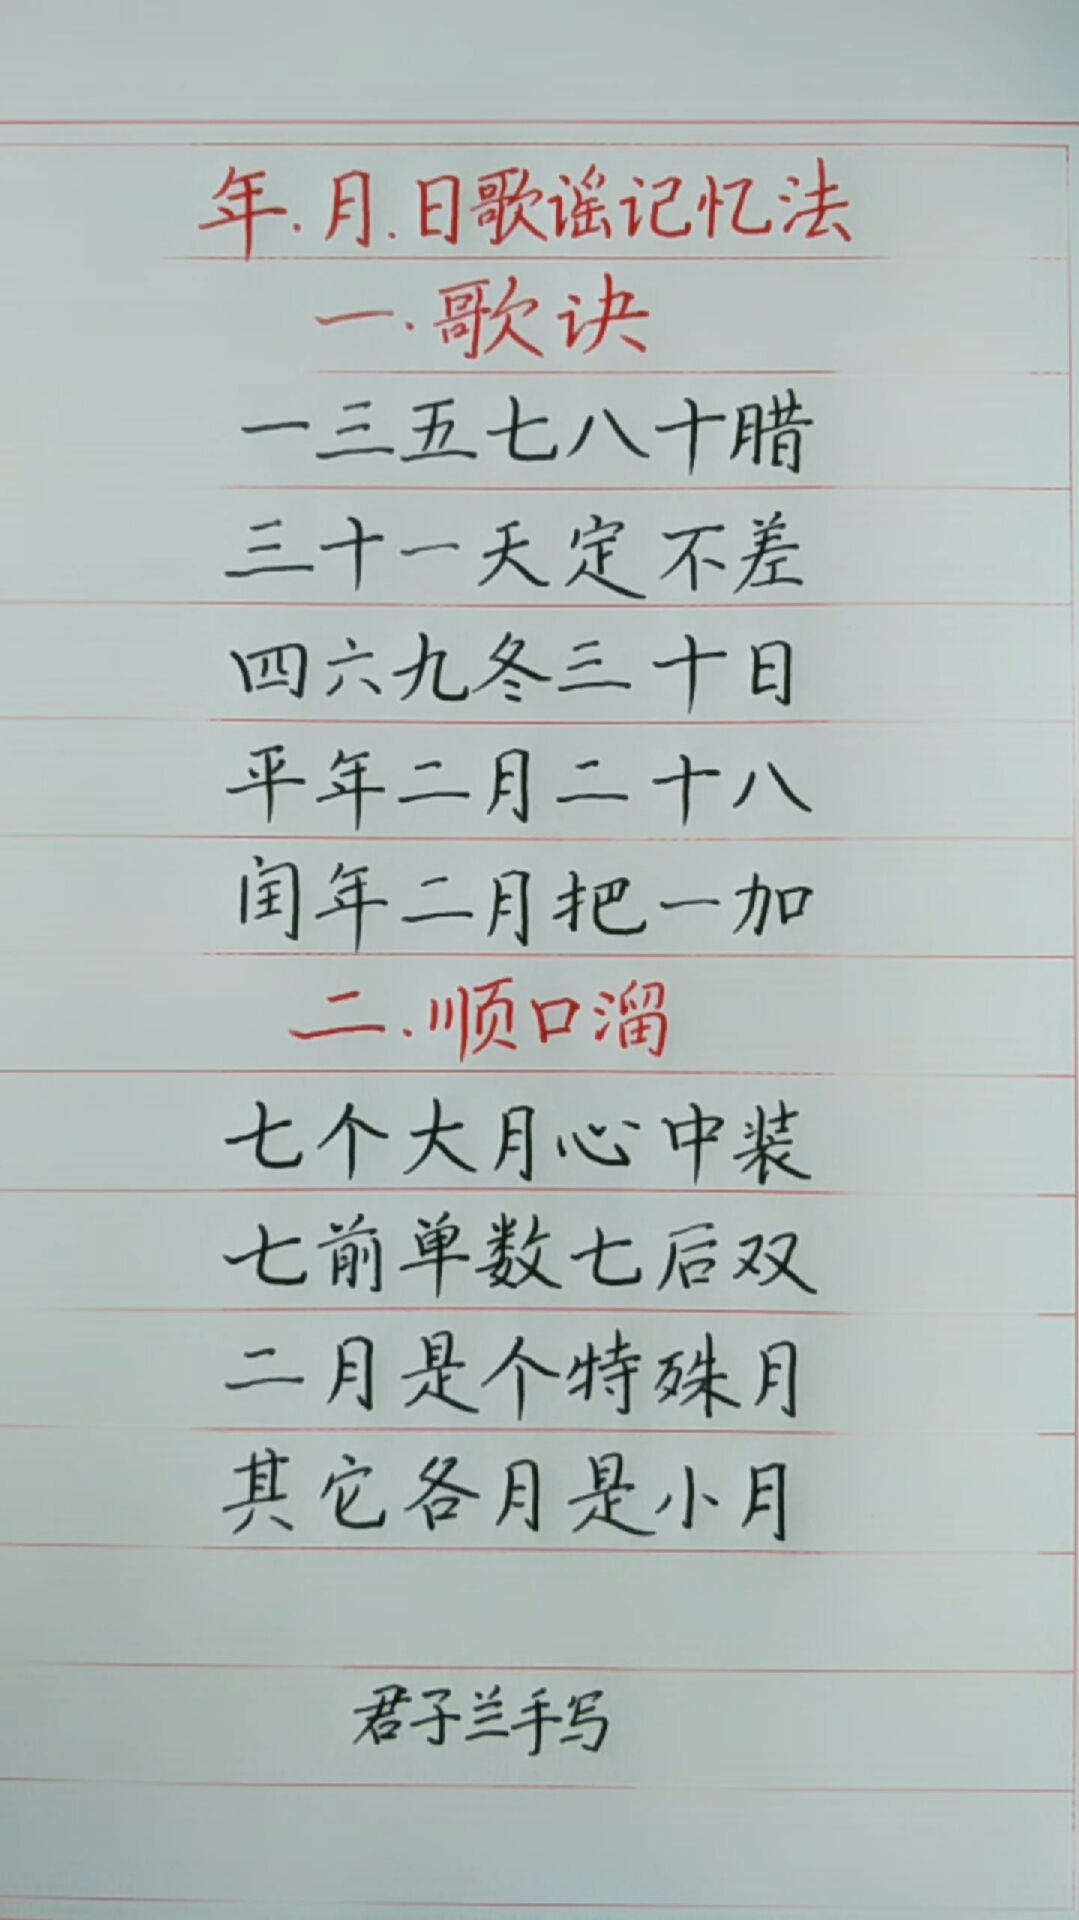 年.月.日歌谣记忆法
一.歌诀
一三五七八十腊
三十一天定不差
四六九冬三十日
平年二月二十八
闰年二月把一加
二.顺口溜
七个大月心中装
七前单数七后双
二月是个特殊月
其它各月是小月
君子兰手写